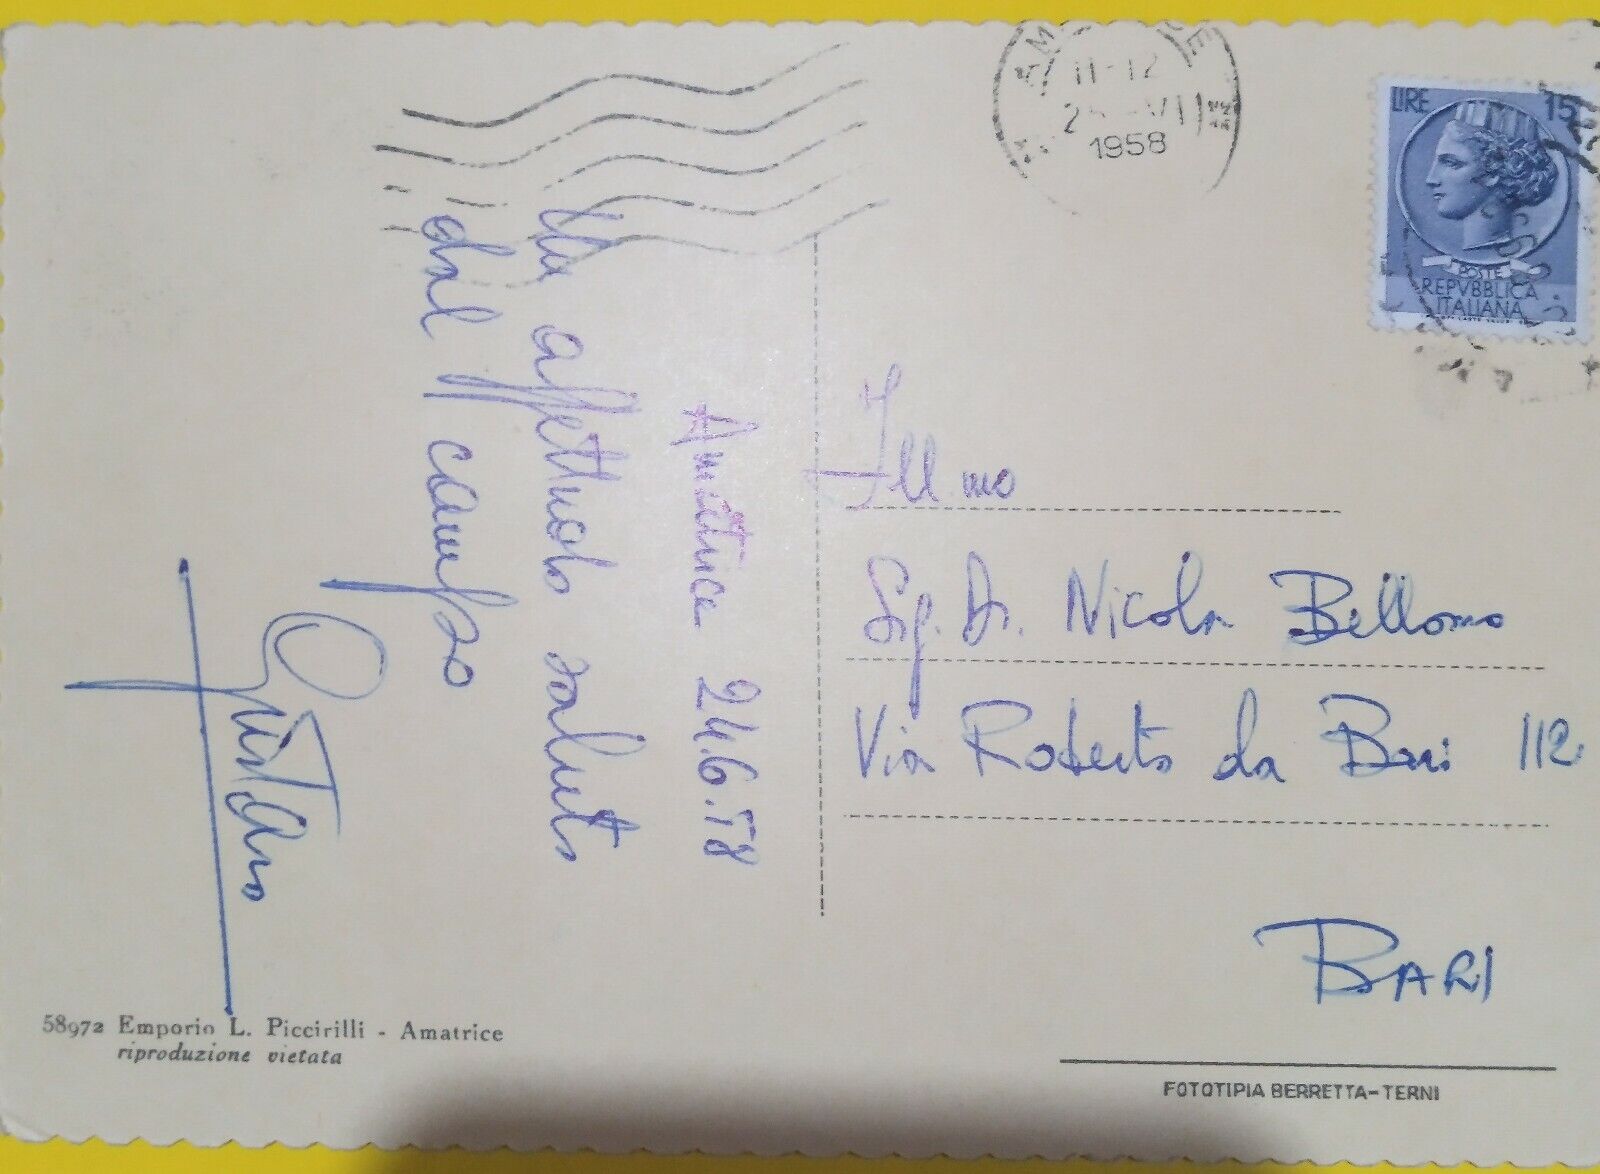 Amatrice 24.6.58
Un affettuoso saluto
dal campo
Gustavo
58972 Emporio L. Piccirilli - Amatrice
riproduzione vietata
11-12
1958
LIRE 15
POSTE
REPVBBLICA
ITALIANA
Ill.mo
Sig. Dr. Nicola Bellomo
Via Roberto da Bari 112
BARI
FOTOTIPIA BERRETTA-TERNI